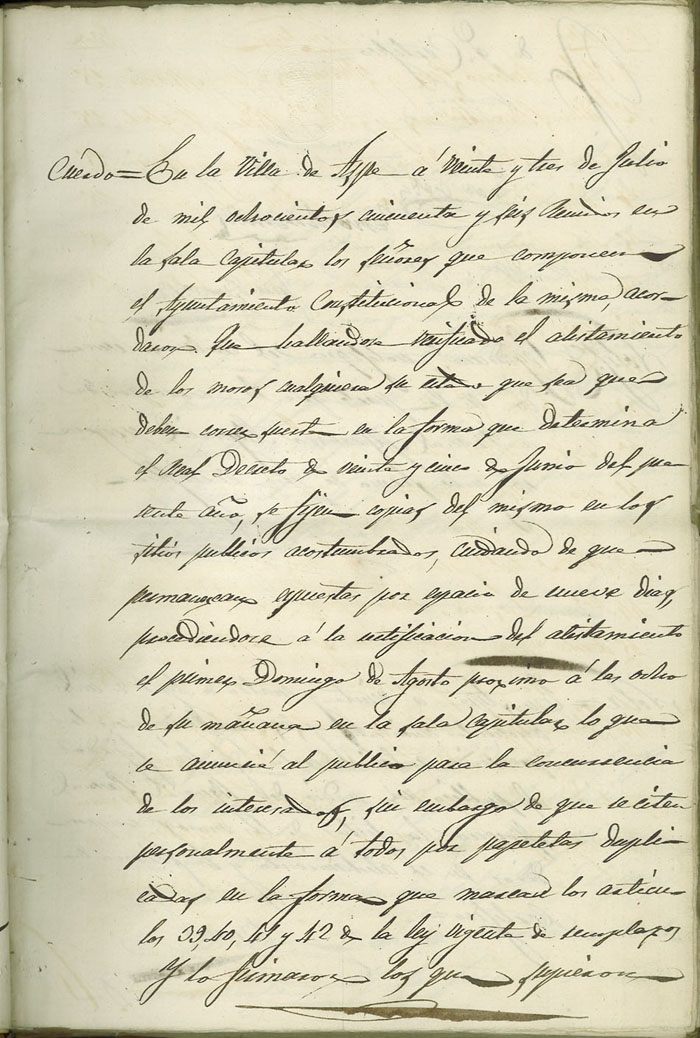 Cuerdo = En la Villa de Aspe á veinte y tres de Julio
de mil ochocientos cincuenta y seis Reunidos en
la sala Capitular los señores que componen
el Ayuntamiento Constitucional de la misma, acor-
daron Que hallandose verificado el alistamiento
de los mosos cualquiera su estado que sea que
deben correr suerte en la forma que determina
el Real Decreto de veinte y cinco de Junio del pre
sente año, se fijen copias del mismo en los
sitios publicos acostumbrados, cuidando de que
permanezcan espuestas por espacio de nueve dias,
procediendose á la rectificacion del alistamiento
el primer Domingo de Agosto proximo á las ocho
de su mañana en la sala capitular lo que
se anuncie al publico para la concurrencia
de los interesados, sin embargo de que se citen
personalmente á todos por papeletas dupli-
cadas en la forma que marcan los articu-
los 39, 40, 41 y 42 de la ley vigente de reemplazos
Y lo firmaron los que supieron